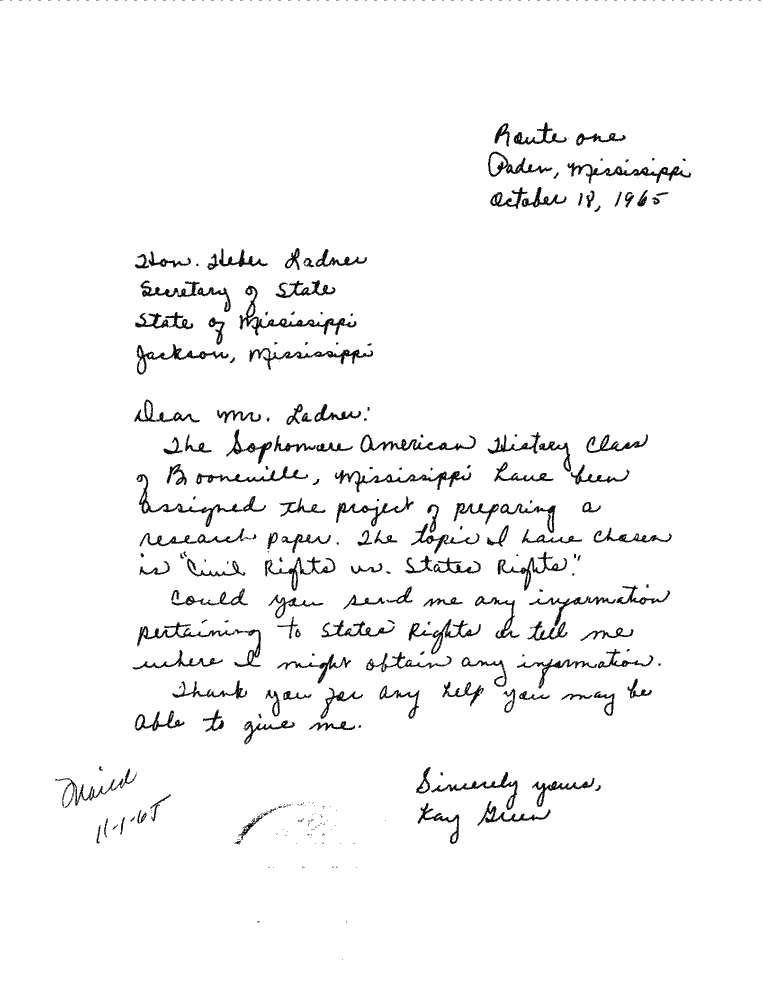 Route one
Paden, Mississippi
October 18, 1965
Hon. Heber Ladner
Secretary of State
State of Mississippi
Jackson, Mississippi
Dear Mr. Ladner:
The Sophomore American History Class
of Booneville, Mississippi have been
assigned the project of preparing a
research paper. The topic I have chosen
is "Civil Rights vs. States Rights."
Could you send me any information
pertaining to States Rights or tell me
where I might obtain any information.
Thank you for any help you may be
able to give me.
Sincerely yours,
Kay Green
Mailed
11-1-65